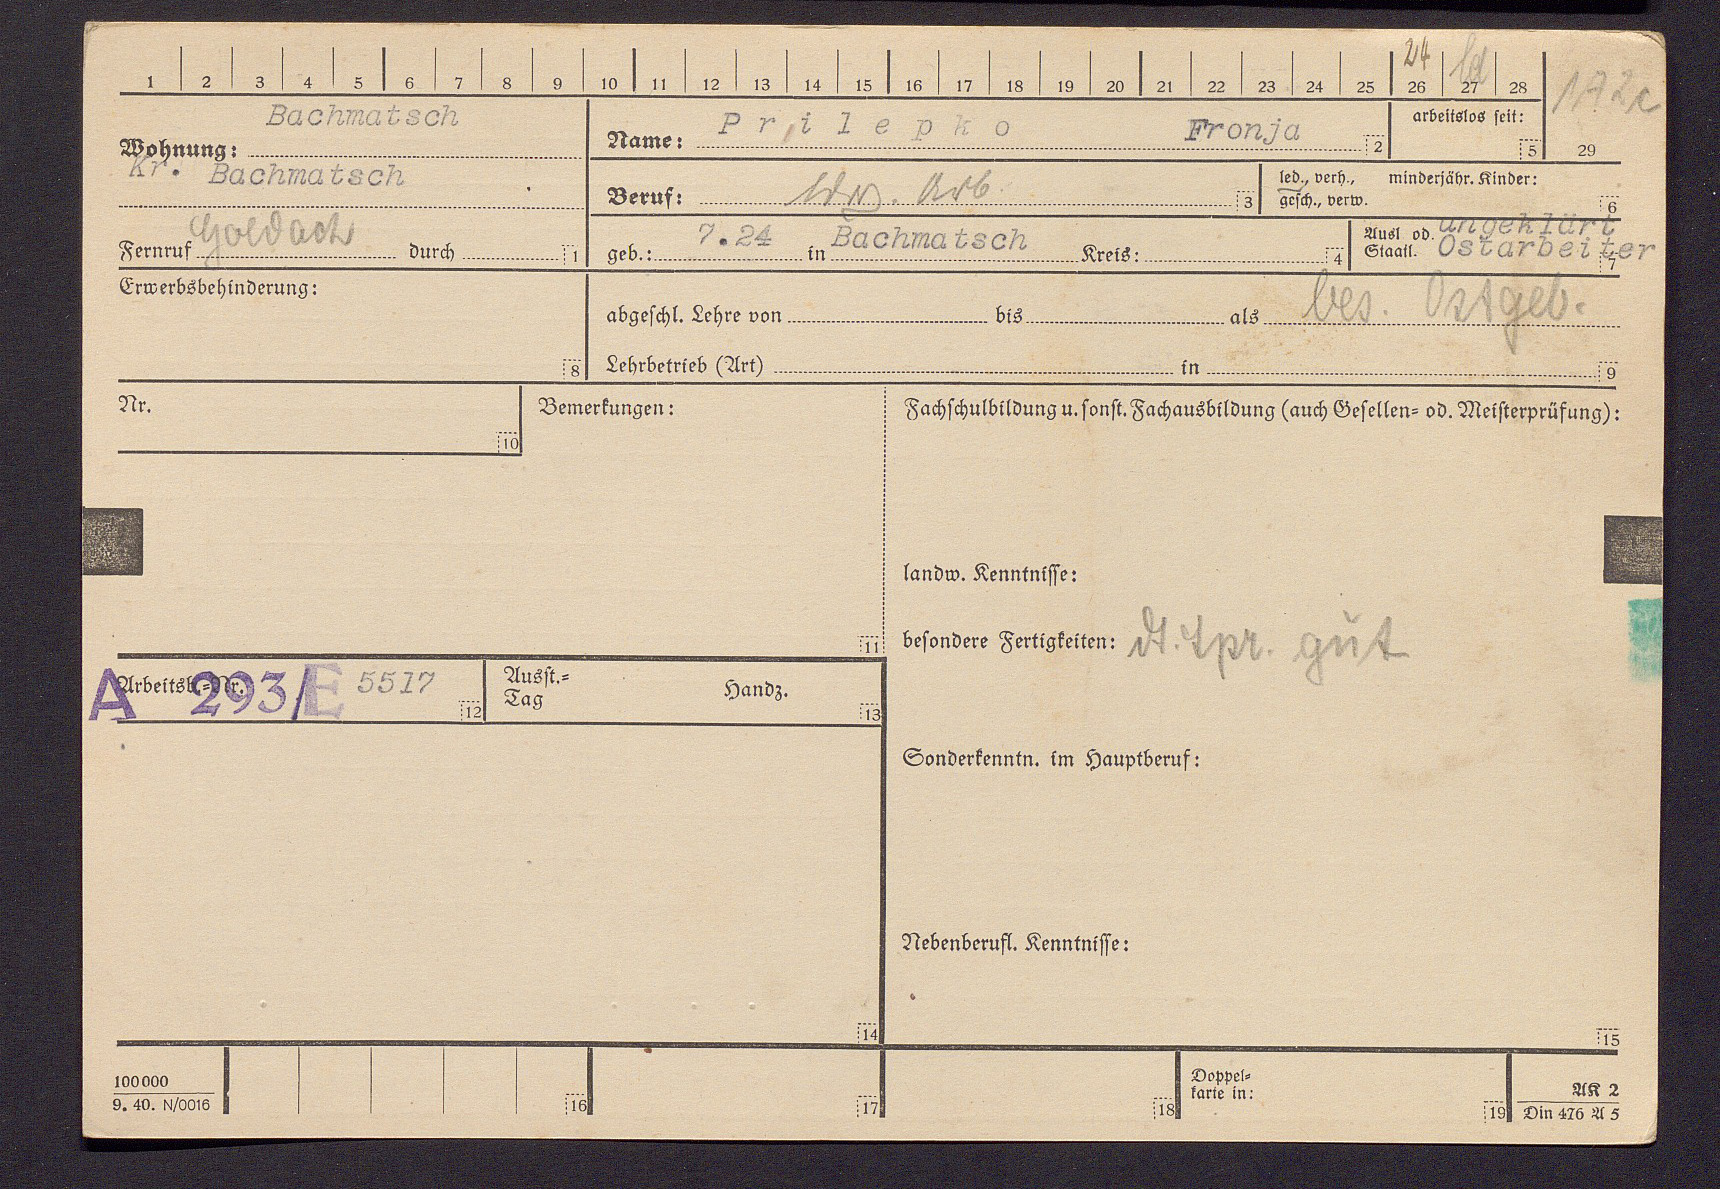 24 ld
1 2 3 4 5 6 7 8 9 10 11 12 13 14 15 16 17 18 19 20 21 22 23 24 25 26 27 28 29
1A2c
Bachmatsch
Wohnung:
Kr. Bachmatsch
Goldach
Fernruf durch 1
Name: Prilepko Fronja 2
arbeitslos seit: 5
Beruf: ldw. Arb. 3
led., verh., minderjähr. Kinder:
gesch., verw. 6
geb.: 7.24 in Bachmatsch Kreis: 4
Ausl od. ungeklärt
Staatl. Ostarbeiter 7
Erwerbsbehinderung: 8
bes. Ostgeb.
abgeschl. Lehre von bis als
Lehrbetrieb (Art) in 9
Nr. 10
Bemerkungen: 11
Fachschulbildung u. sonst. Fachausbildung (auch Gesellen- od. Meisterprüfung):
landw. Kenntnisse:
besondere Fertigkeiten: dt. Spr. gut
Arbeitsb.-Nr. A 293/E 5517 12
Ausst.-
Tag Handz. 13
Sonderkenntn. im Hauptberuf:
Nebenberufl. Kenntnisse:
14 15
100000
9. 40. N/0016
16 17 18
Doppel-
karte in: 19
AK 2
Din 476 A 5